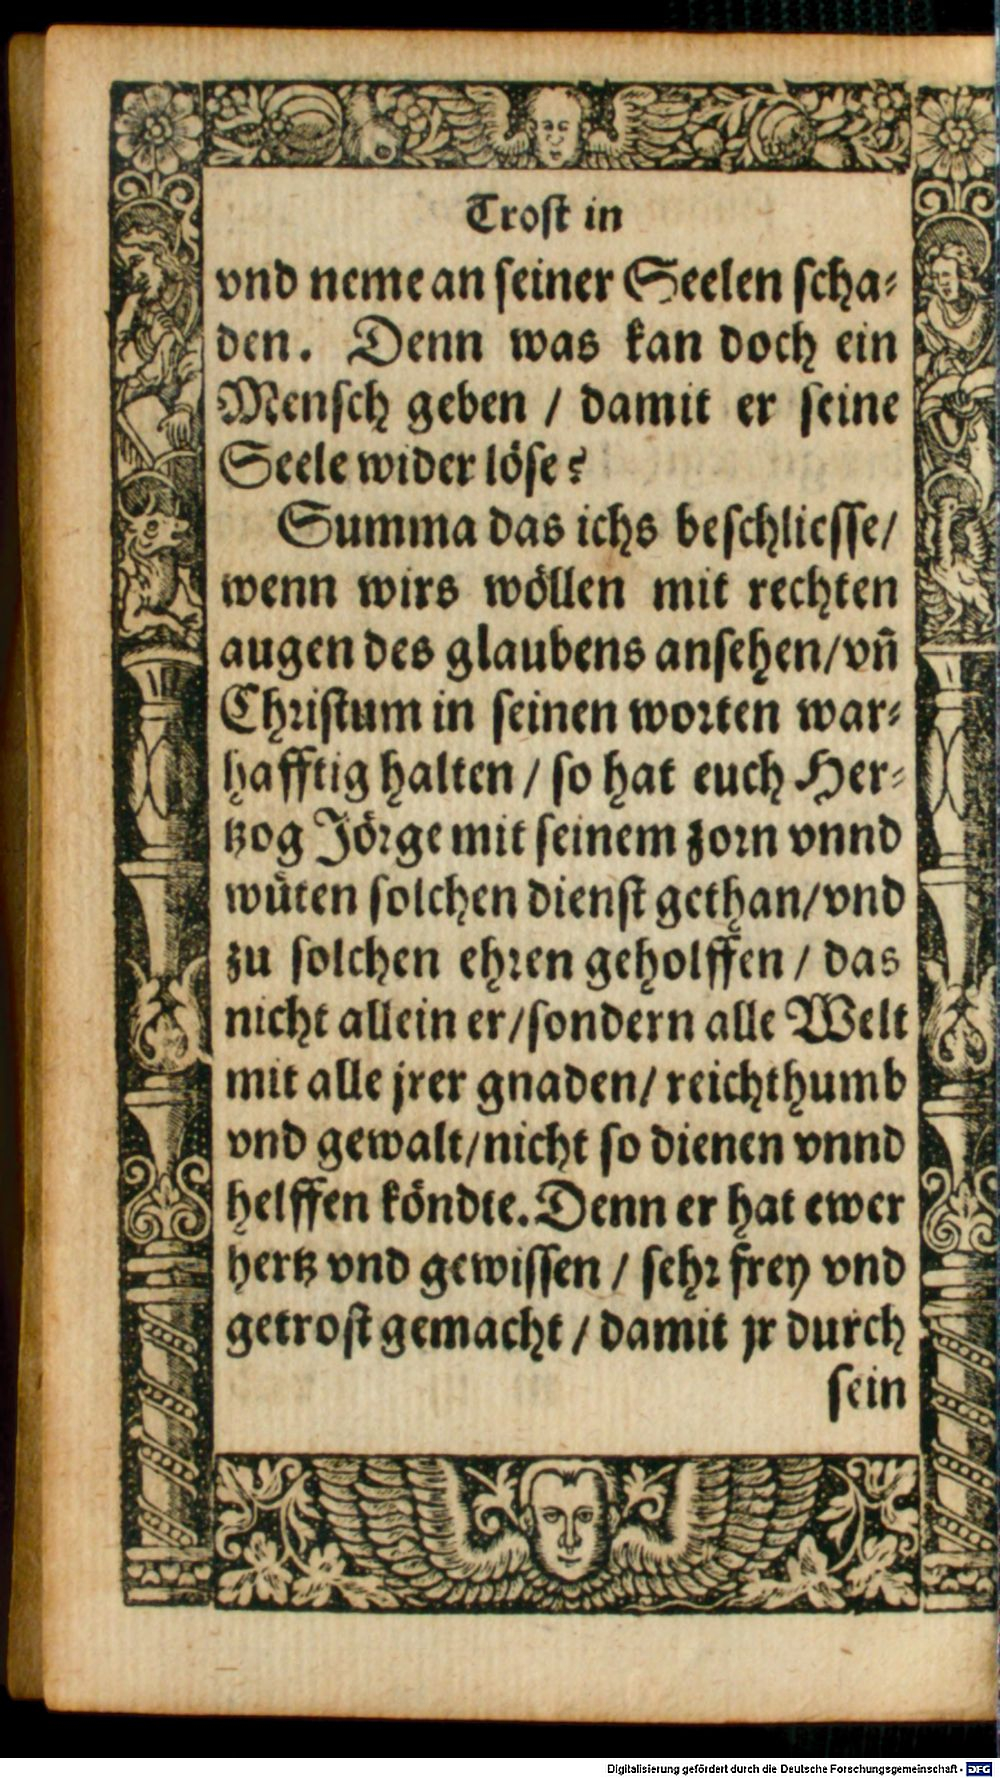 Troſt in
vnd neme an ſeiner Seelen ſcha⸗
den. Denn was kan doch ein
Menſch geben / damit er ſeine
Seele wider löſe?
Summa das ichs beſchlieſſe/
wenn wirs wöllen mit rechten
augen des glaubens anſehen/vñ
Chꝛiſtum in ſeinen woꝛten war⸗
hafftig halten / ſo hat euch Her⸗
tzog Jöꝛge mit ſeinem zoꝛn vnnd
wüten ſolchen dienſt gethan/vnd
zu ſolchen ehꝛen geholffen / das
nicht allein er/ſondern alle Welt
mit alle jrer gnaden/ reichthumb
vnd gewalt/nicht ſo dienen vnnd
helffen köndte. Denn er hat ewer
hertz vnd gewiſſen / ſehꝛ frey vnd
getroſt gemacht / damit jr durch
ſein
Digitalisierung gefördert durch die Deutsche Forschungsgemeinschaft - DFG